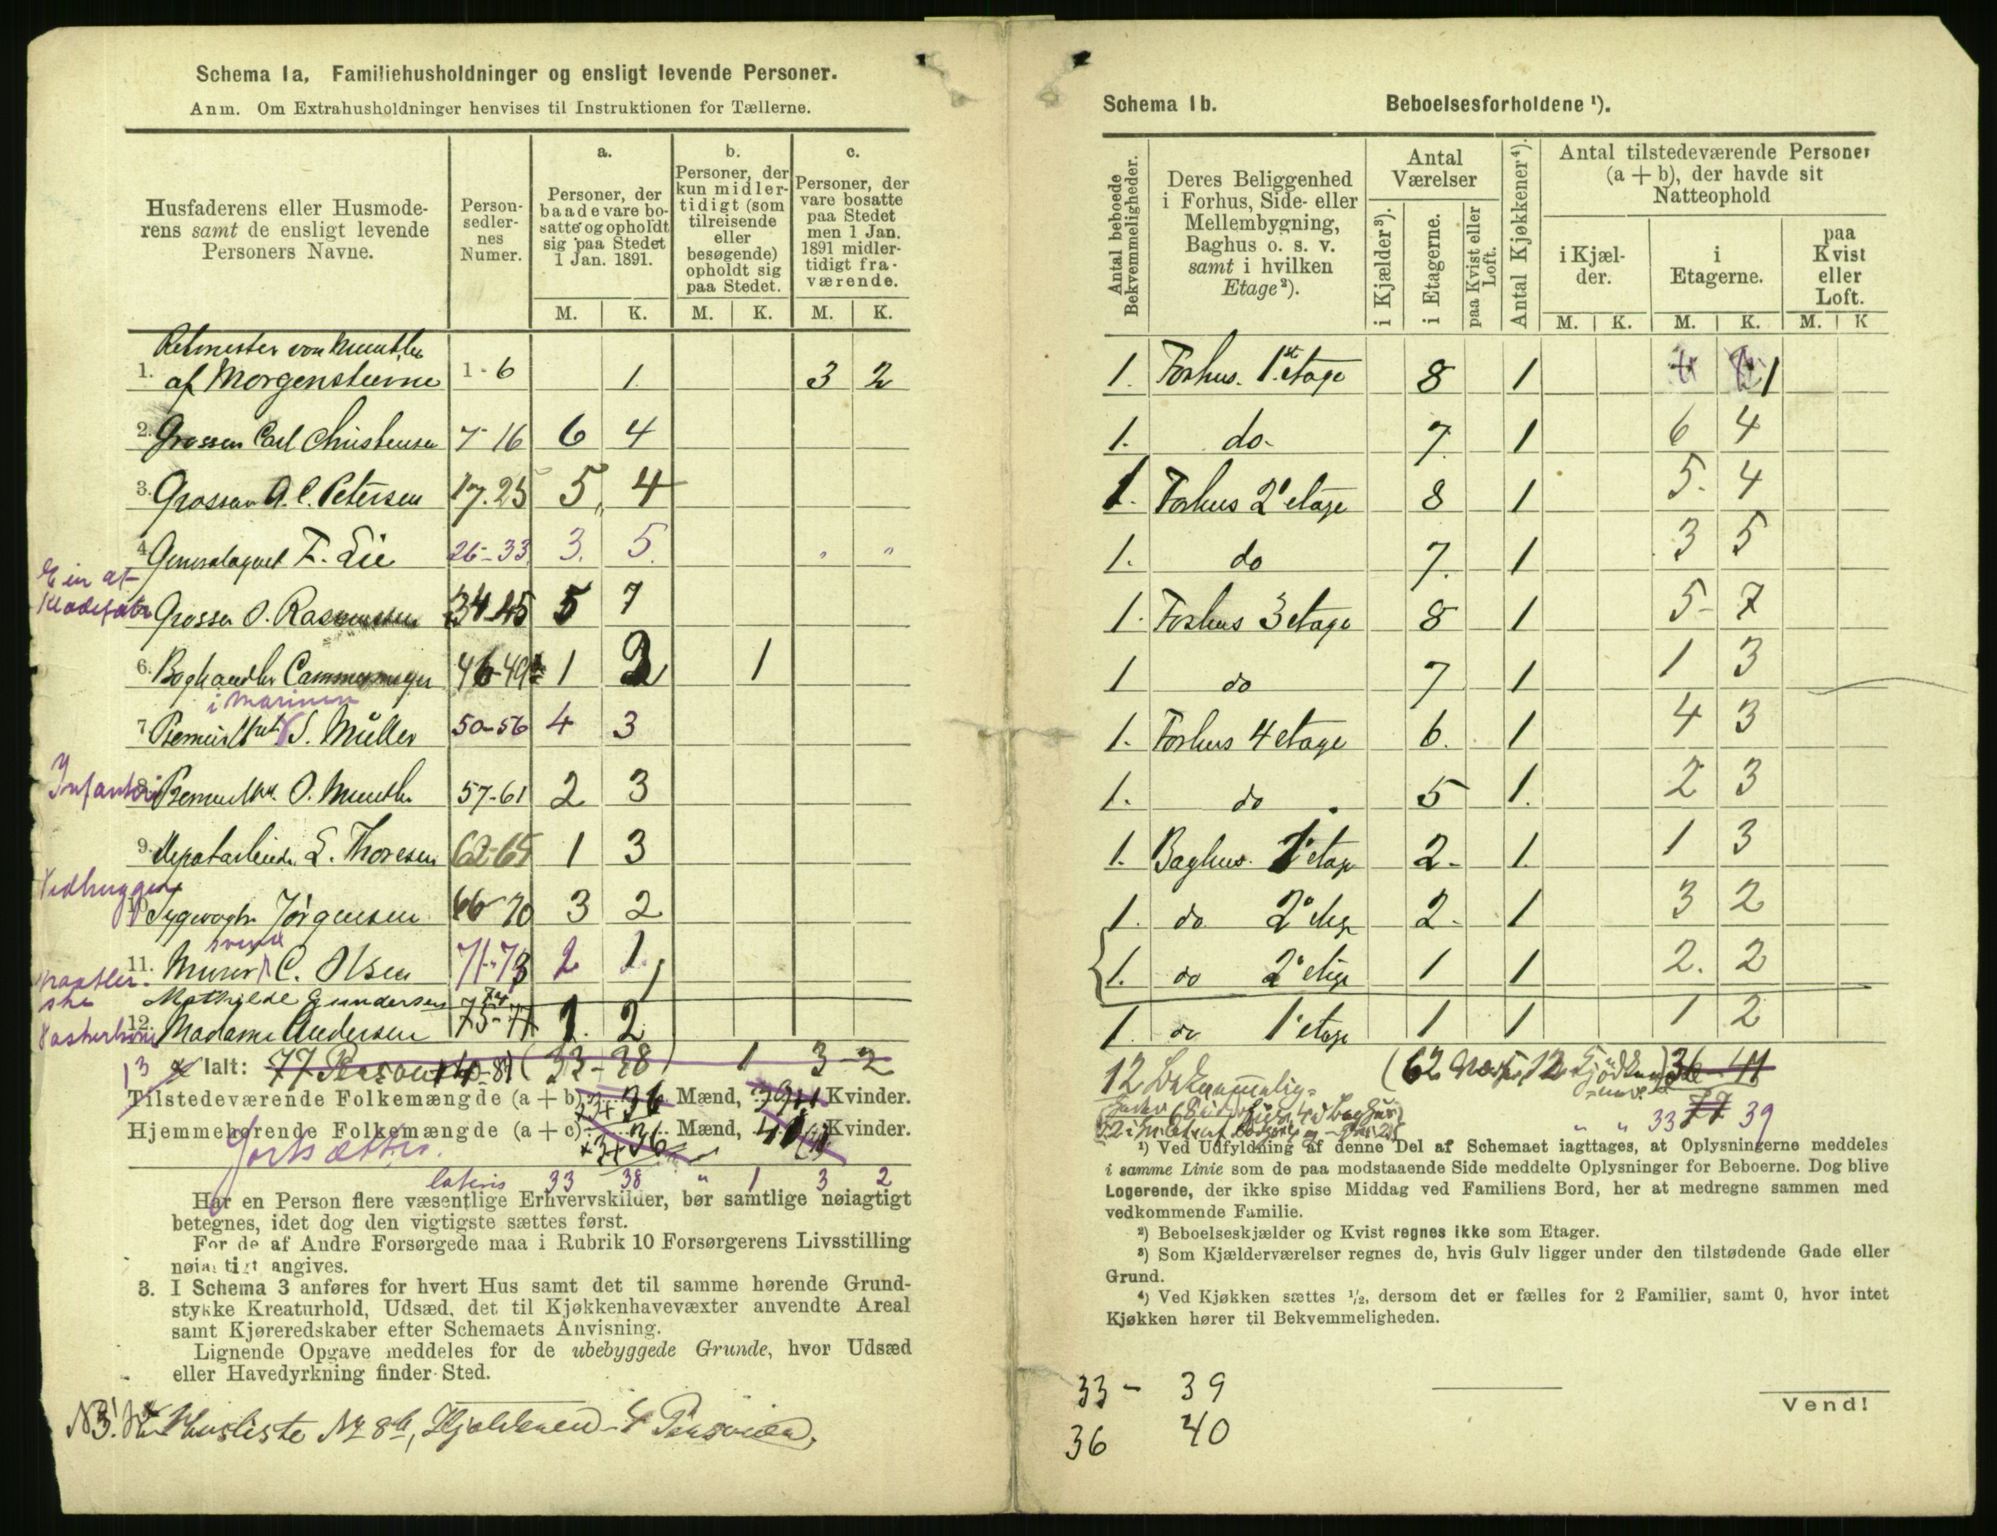 Schema 1a, Familiehusholdninger og ensligt levende Personer.
Anm. Om Extrahusholdninger henvises til Instruktionen for Tællerne.
Husfaderens eller Husmode-
rens samt de ensligt levende
Personers Navne.
Person-
sedler-
nes
Numer.
a.
Personer, der
baade vare bo-
satte og opholdt
sig paa Stedet
1 Jan. 1891.
b.
Personer, der
kun midler-
tidigt (som
tilreisende
eller
besøgende)
opholdt sig
paa Stedet.
c.
Personer, der
vare bosatte
paa Stedet
men 1 Jan.
1891 midler-
tidigt fra-
værende.
M. K. M. K. M. K.
Retmester von Munthe
1. af Morgenstierne 1-6 1. 3 2
2. Grosser Carl Christensen 7-16 6 4
3. Grosser A. C. Petersen 17.25 5, 4
4. Generalagent F. Lie 26-33 3. 5. " "
Ein af
Grosser O. Rasmussen 34-45 5 7
6. Boghandler Cammermeyer 46-49 1 1
i marinen
7 Premierlt S. Müller 50-56 4 3
Infanteri
8. Premierlt. O. Munthe 57-61 2 3
9. L. Thoresen 62-65 1 3
Vedhugger
10. Jørgensen 66-70 3 2
svend
11. Murer C. Olsen 71-73 2 1
Mathilde Gundersen 74
12. Madame Andersen 75-77 1. 2
Vaskerkone
13 Ialt: 77 Personer (33-38) 1 3-2
Tilstedeværende Folkemængde (a + b) 36 Mænd, Kvinder.
Hjemmehørende Folkemængde (a + c) 36 Mænd, Kvinder.
Fortsættes.
lateris 33 38 " 1 3 2
Har en Person flere væsentlige Erhvervskilder, bør samtlige nøiagtigt
betegnes, idet dog den vigtigste sættes først.
For de af Andre Forsørgede maa i Rubrik 10 Forsørgerens Livsstilling
nøiagtigt angives.
3. I Schema 3 anføres for hvert Hus samt det til samme hørende Grund-
stykke Kreaturhold, Udsæd, det til Kjøkkenhavevæxter anvendte Areal
samt Kjøreredskaber efter Schemaets Anvisning.
Lignende Opgave meddeles for de ubebyggede Grunde, hvor Udsæd
eller Havedyrkning finder Sted.
NB! Husliste No 8b, Kjælderen - 4 Personer.
Schema 1b. Beboelsesforholdene ¹).
Antal beboede
Bekvemmeligheder.
Deres Beliggenhed
i Forhus, Side- eller
Mellembygning,
Baghus o. s. v.
samt i hvilken
Etage²).
Antal
Værelser
i Kjælder³).
i Etagerne.
paa Kvist eller
Loft.
Antal Kjøkkener⁴).
Antal tilstedeværende Personer
(a + b), der havde sit
Natteophold
i Kjæl-
der.
i
Etagerne.
paa
Kvist
eller
Loft.
M. K. M. K. M. K
1. Forhus. 1st etage 8 1 1
1. do- 7. 1 6 4
1. Forhus 2 etage 8 1 5. 4
1. do 7. 1 3 5
1. Forhus 3 etage 8 1 5- 7
1 do 7 1 1 3
1. Forhus 4 etage 6. 1 4 3
1. do 5 1. 2 3
1. Baghus. 1 etage 2- 1. 1 3
1. do 2 etage 2- 1 3 2
1. do 2 etage 1 1 2. 2
1. do 1 etage 1 1 1 2
12 Bekvemmelig- (62 Vær., 12 Kjøkken) 36-41
" " 33 77 39
¹) Ved Udfyldning af denne Del af Schemaet iagttages, at Oplysningerne meddeles
i samme Linie som de paa modstaaende Side meddelte Oplysninger for Beboerne. Dog blive
Logerende, der ikke spise Middag ved Familiens Bord, her at medregne sammen med
vedkommende Familie.
²) Beboelseskjælder og Kvist regnes ikke som Etager.
³) Som Kjælderværelser regnes de, hvis Gulv ligger under den tilstødende Gade eller
Grund.
⁴) Ved Kjøkken sættes ¹/₂, dersom det er fælles for 2 Familier, samt 0, hvor intet
Kjøkken hører til Bekvemmeligheden.
33 - 39
36 40
Vend!